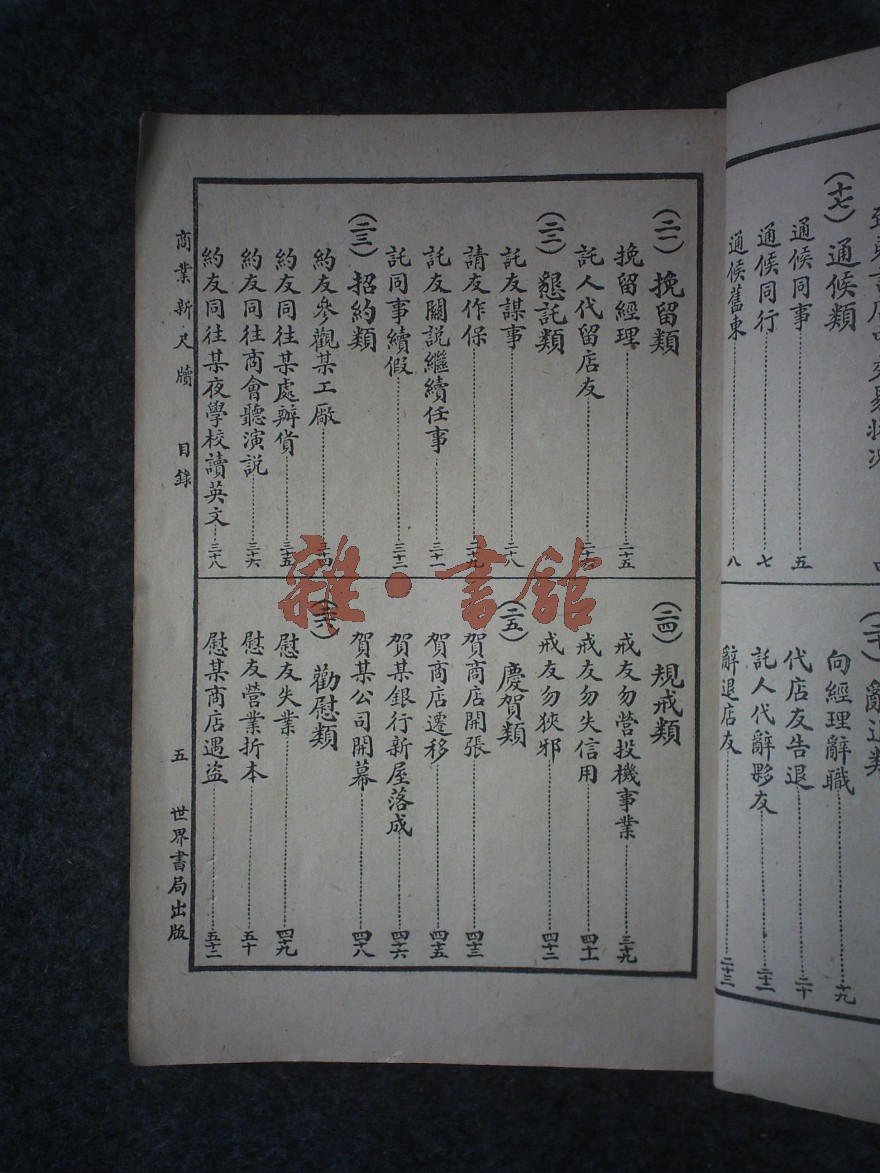 (十七)通候類
通候同事 五
通候同行 七
通候舊東 八
辭退類
向經理辭職 十九
代店友告退 二十
託人代辭夥友 二十一
辭退店友 二十三
(二一)挽留類
挽留經理 二十五
託人代留店友
(二二)懇託類
託友謀事 二十八
請友作保 二十九
託友關說繼續任事 三十一
託同事續假 三十二
(二三)招約類
約友參觀某工廠 三十四
約友同往某處辦貨 三十五
約友同往商會聽演説 三十六
約友同往某夜學校讀英文 三十八
(二四)規戒類
戒友勿營投機事業 三十九
戒友勿失信用 四十一
戒友勿狹邪 四十二
(二五)慶賀類
賀商店開張 四十三
賀商店遷移 四十五
賀某銀行新屋落成 四十六
賀某公司開幕 四十八
(二六)勸慰類
慰友失業 四十九
慰友營業折本 五十
慰某商店遇盜 五十二
商業新尺牘 目錄 五 世界書局出版
雜·書館